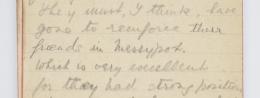 they must, I think, have
gone to reinforce their
friends in Messypot.
Which is very excellent
for they had strong position